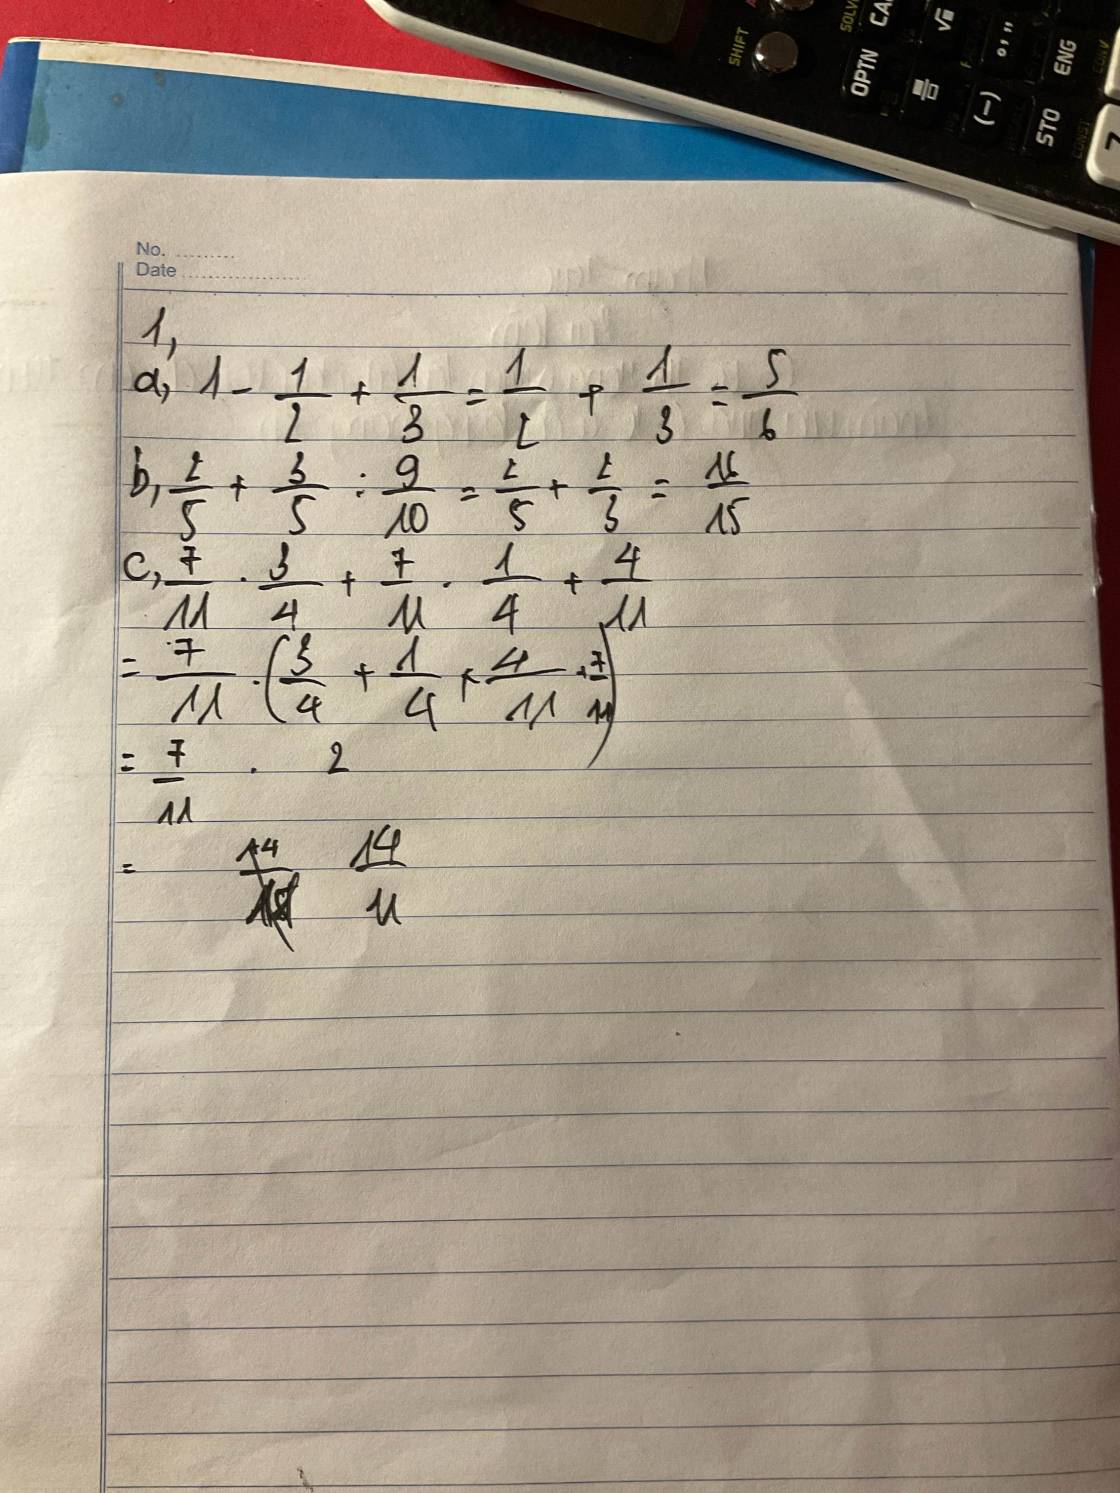 SHIFT
SOLV
OPTN CA
√
° , ,,
ENG
(−)
STO
CONST
7
No. ..........
Date ....................
1,
a, 1 - 1/2 + 1/3 = 1/2 + 1/3 = 5/6
b, 2/5 + 3/5 : 9/10 = 2/5 + 2/3 = 16/15
c, 7/11 . 3/4 + 7/11 . 1/4 + 4/11
= 7/11 . (3/4 + 1/4 + 4/11 + 7/11)
= 7/11 . 2
= 14/11